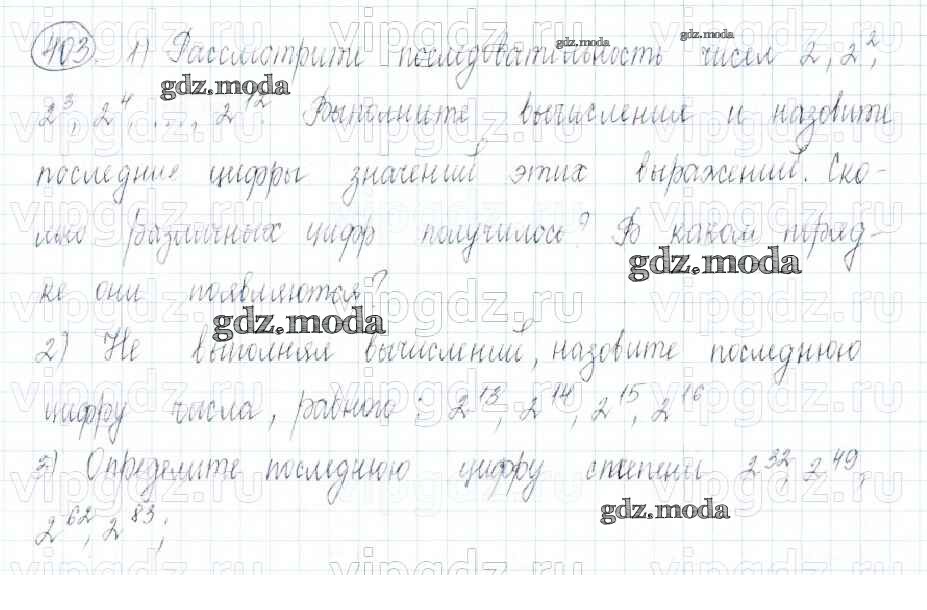 403. 1) Рассмотрите последовательность чисел 2, 2²,
2³, 2⁴, ..., 2¹². Выполните вычисления и назовите
последние цифры значений этих выражений. Ско-
лько различных цифр получилось? В каком поряд-
ке они появляются?
2) Не выполняя вычислений, назовите последнюю
цифру числа, равного: 2¹³, 2¹⁴, 2¹⁵, 2¹⁶
3) Определите последнюю цифру степени 2³², 2⁴⁹,
2⁶², 2⁸³;
gdz.moda
gdz.moda
gdz.moda
gdz.moda
gdz.moda
gdz.moda
vipgdz.ru